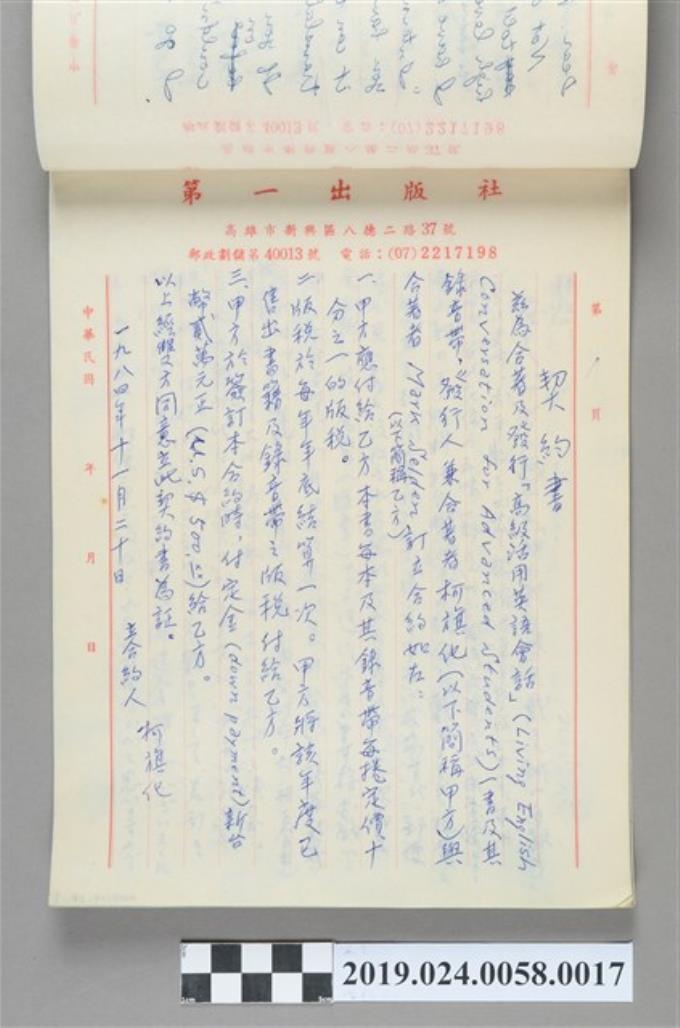 郵政劃儲第40013號 電話：(07)2217198
第一出版社
高雄市新興區八德二路37號
郵政劃儲第40013號 電話：(07)2217198
第1頁
契約書
茲為合著及發行「高級活用英語會話」(Living English
Conversation for Advanced Students)(書及其
錄音帶，發行人兼合著者柯旗化(以下簡稱甲方)與
合著者 Mark Selden (以下簡稱乙方)訂立合約如左：
一、甲方應付給乙方本書每本及其錄音帶每捲定價十
分之一的版稅。
二、版稅於每年年底結算一次。甲方將該年度已
售出書籍及錄音帶之版稅付給乙方。
三、甲方於簽訂本合約時，付定金(down payment)新台
幣貳萬元正(U.S.$500.00)給乙方。
以上經雙方同意立此契約書為証。
立合約人 柯旗化
一九八四年十一月二十日
中華民國 年 月 日
2019.024.0058.0017